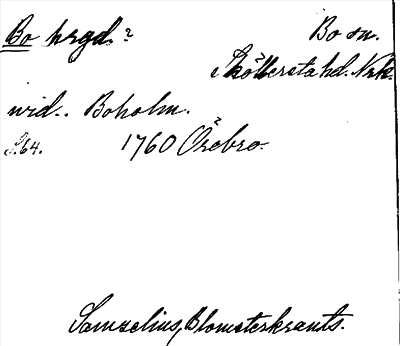 Bo hrgd.? Bo sn.
Sköllersta hd. Nrk.
vid.. Boholm.
S. 64. 1760 Örebro.
Samzelius, Blomsterkrants.